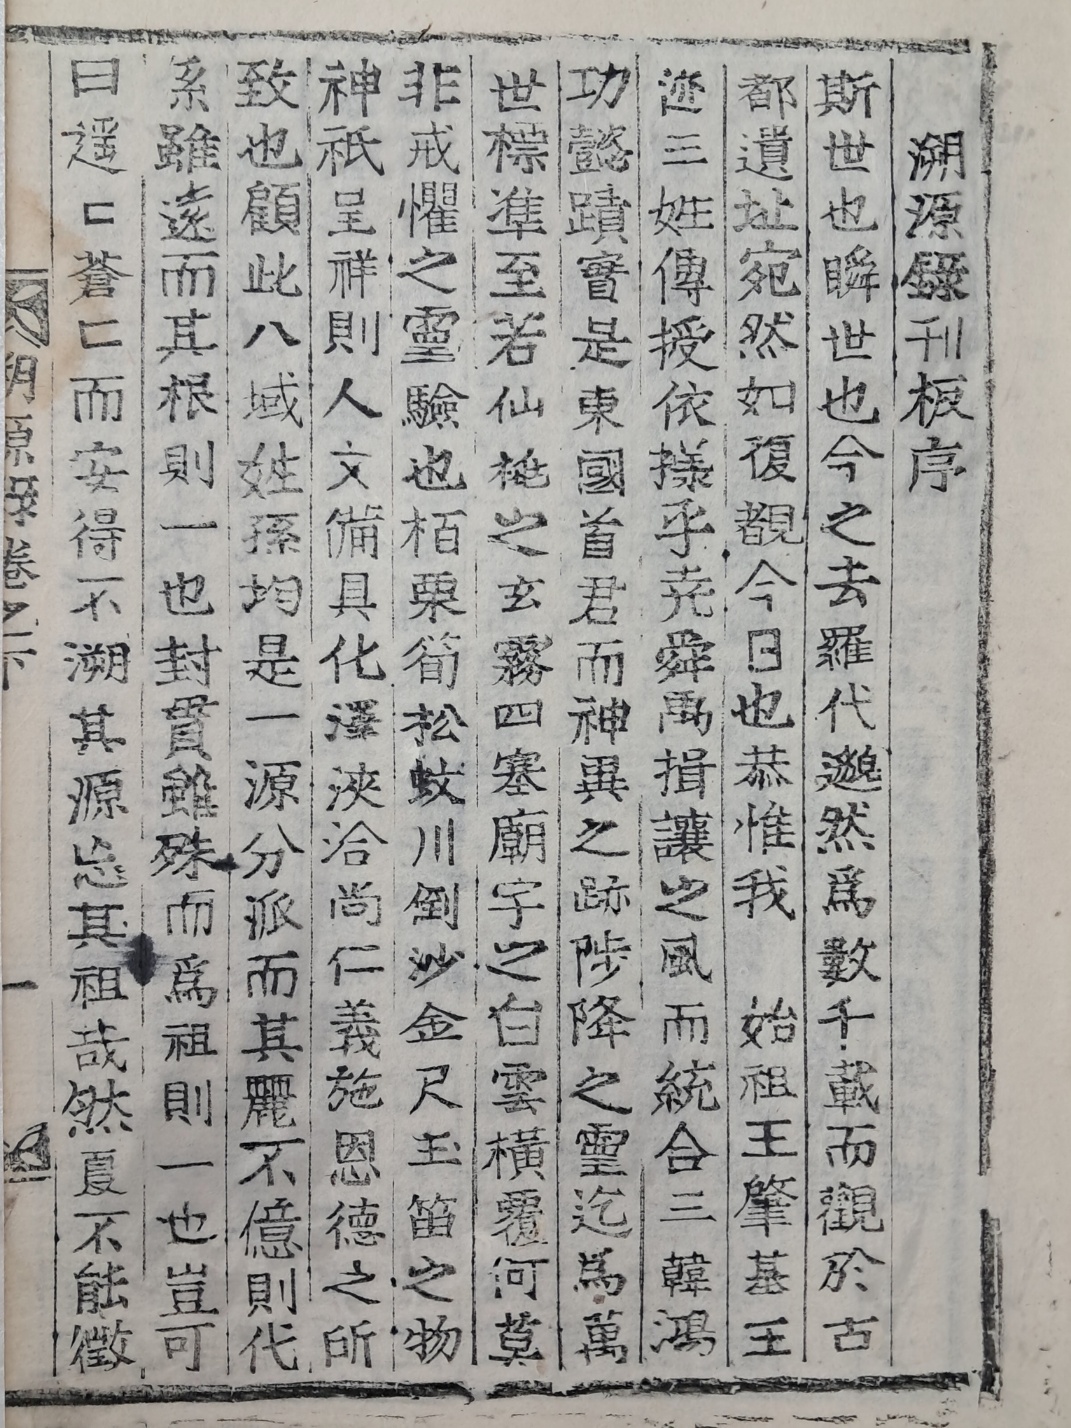 溯源録刊板序
斯世也瞬世也今之去羅代邈然爲數千載而觀於古
都遺址宛然如復覩今日也恭惟我 始祖王肇基王
迹三姓傳授依㨾乎尭舜禹揖讓之風而統合三韓鴻
功懿蹟實是東國首君而神異之跡陟降之靈迄爲萬
世標準至若仙桃之玄霧四塞廟宇之白雲横覆何莫
非戒懼之靈驗也栢栗筍松蚊川倒沙金尺玉笛之物
神祇呈祥則人文備具化澤浹洽尚仁義施恩德之所
致也顧此八域姓孫均是一源分派而其麗不億則代
系雖遠而其根則一也封貫雖殊而爲祖則一也豈可
曰遥匸蒼匸而安得不溯其源忘其祖哉然夏不能徵
溯源録卷之下 一